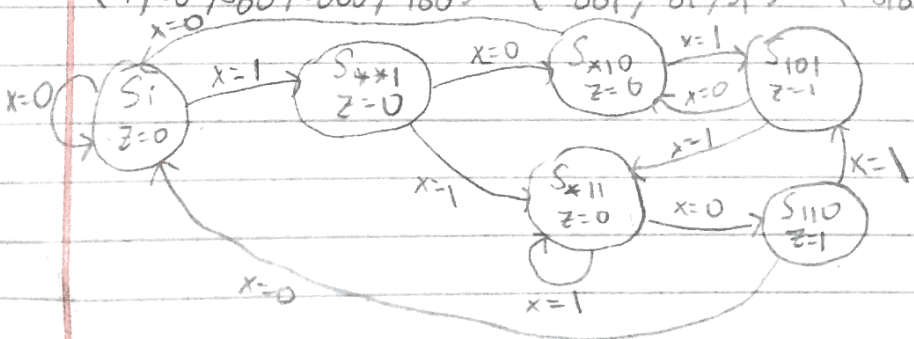 x=0
x=0
Si
z=0
x=1
S**1
z=0
x=0
S*10
z=0
x=1
x=0
S101
z=1
x=1
x=1
S*11
z=0
x=1
x=0
S110
z=1
x=1
x=0